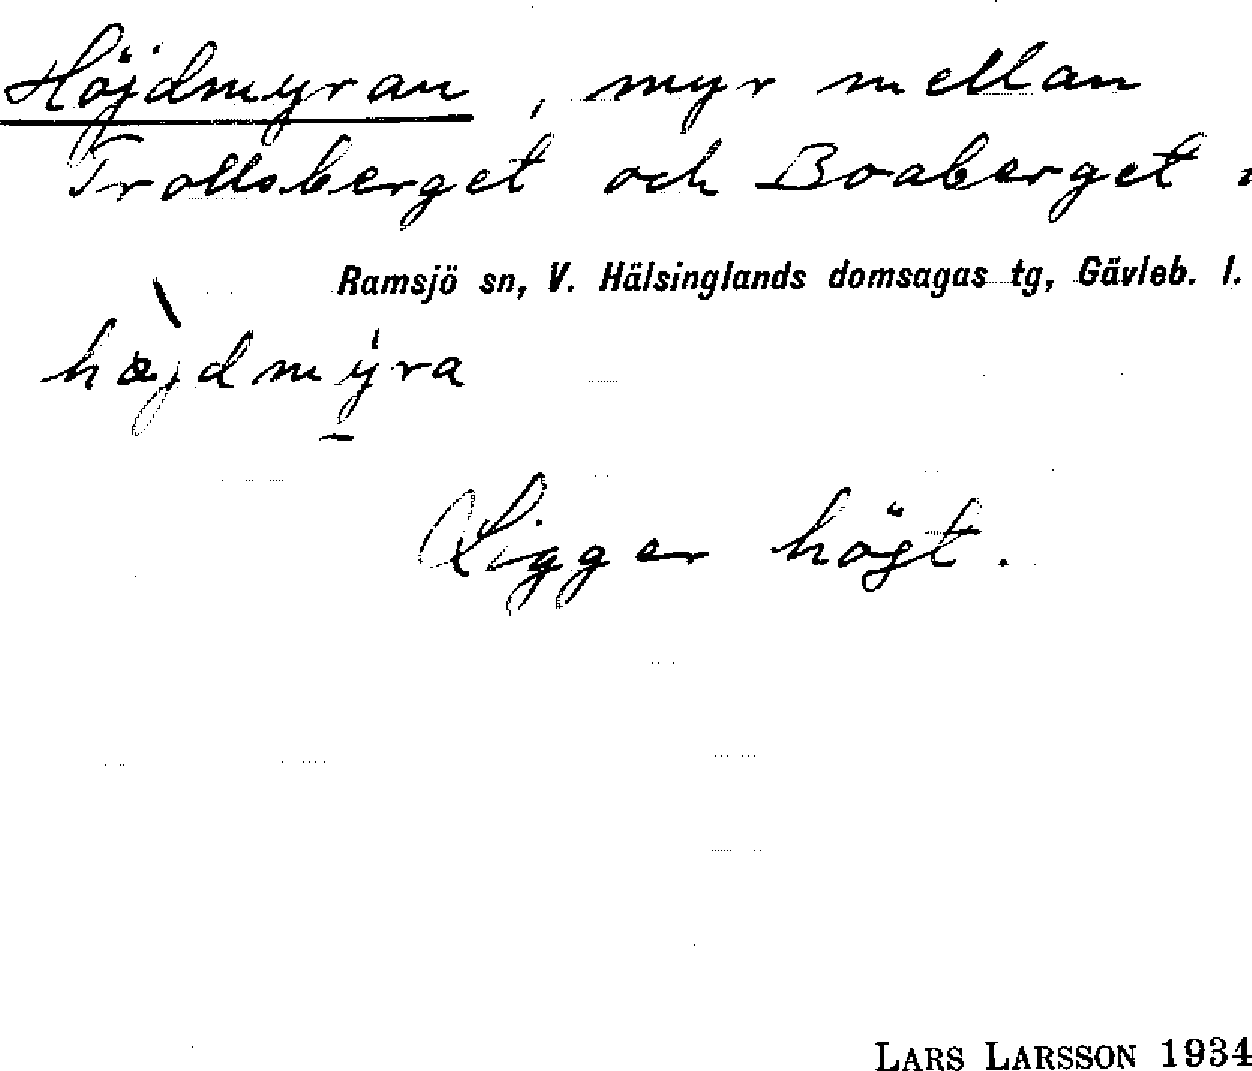 Höjdmyran, myr mellan
Trollsberget och Boaberget i
Ramsjö sn, V. Hälsinglands domsagas tg, Gävleb. l.
hæ̀jdmýra
Ligger högt.
LARS LARSSON 1934